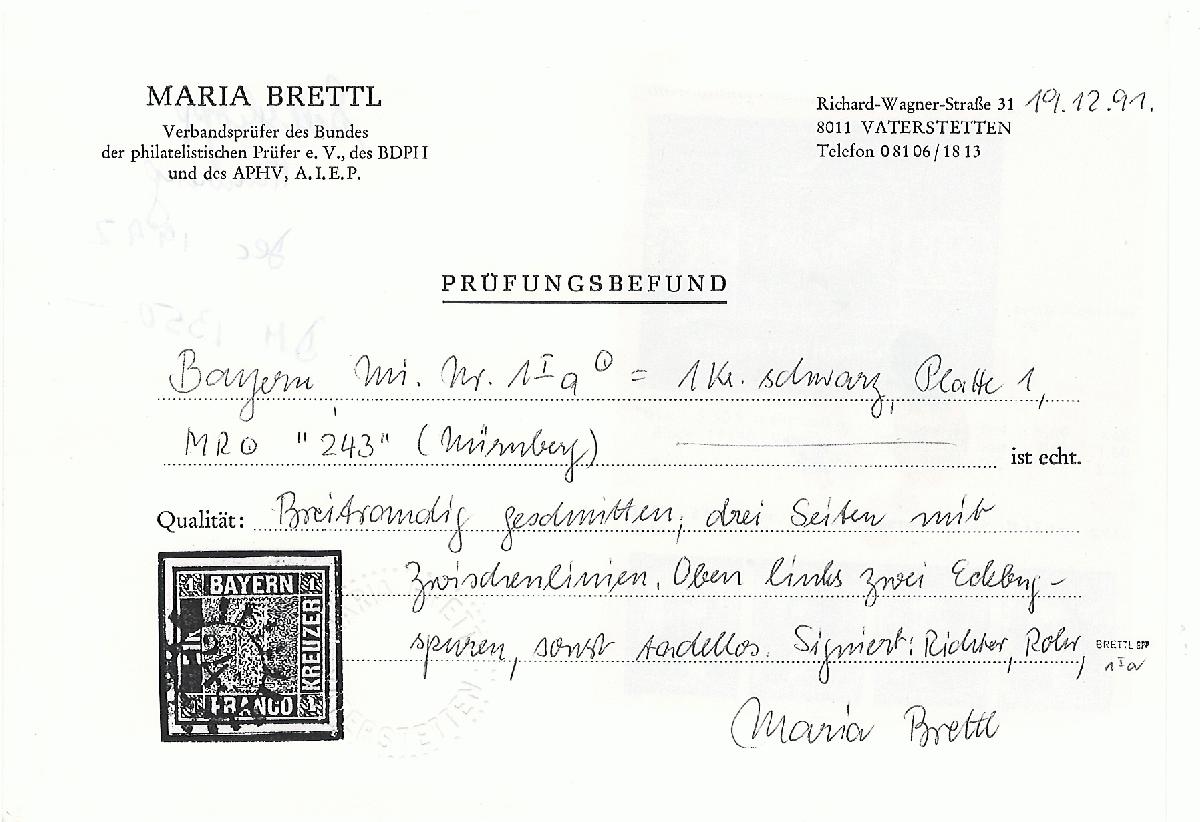 MARIA BRETTL
Verbandsprüfer des Bundes
der philatelistischen Prüfer e. V., des BDPH
und des APHV, A.I.E.P.
Richard-Wagner-Straße 31 19.12.91.
8011 VATERSTETTEN
Telefon 08106/1813
PRÜFUNGSBEFUND
Bayern Mi. Nr. 1 I a ⊙ = 1 Kr. schwarz, Platte 1,
MR ⊙ "243" (Nürnberg) ist echt.
Qualität: Breitrandig geschnitten, drei Seiten mit
Zwischenlinien. Oben links zwei Eckbug-
spuren, sonst tadellos. Signiert: Richter, Rohr,
BRETTL BPP
1 I a
1 BAYERN 1
KREUZER
1 FRANCO 1
Maria Brettl